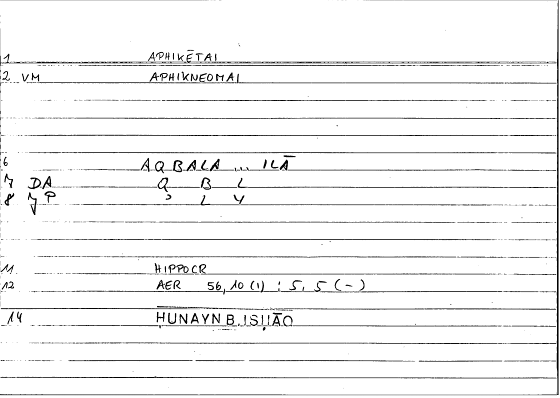 1 APHIKĒTAI
2 VM APHIKNEOMAI
6 AQBALA ... ILĀ
7 DA Q B L
8 P ᵓ L Y
11 HIPPOCR
12 AER 56,10 (1) : 5,5 (-)
14 ḤUNAYN B. ISḤĀQ